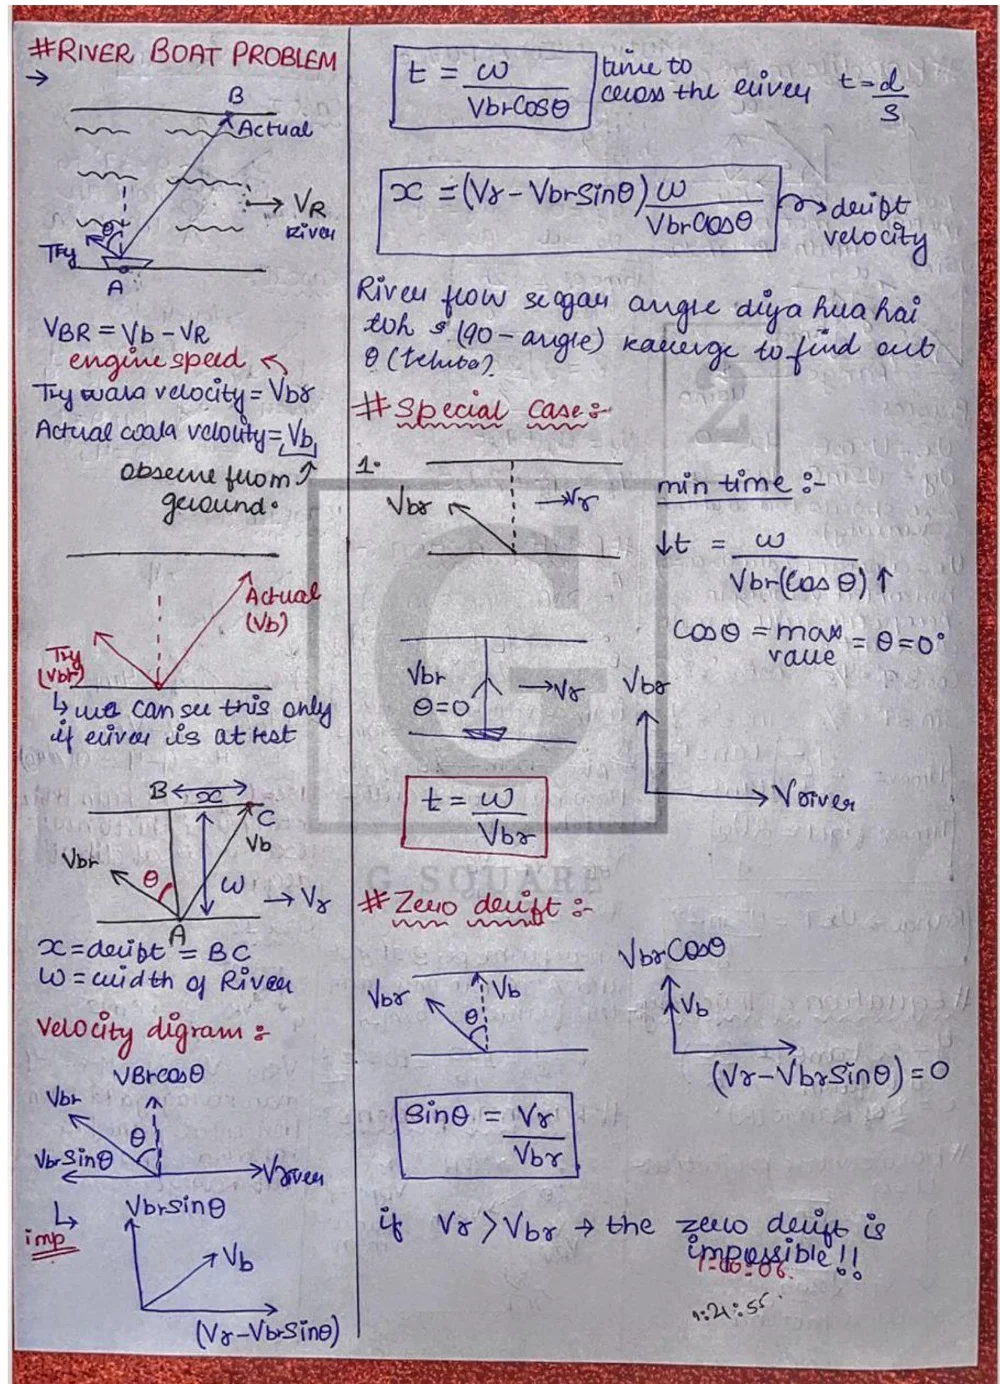 #RIVER BOAT PROBLEM
→
B
Actual
→ VR
River
θ
Try
A
VBR = Vb - VR
engine speed
Try wala velocity = Vbr
Actual wala velocity = Vb
observe from
ground.
Actual
(Vb)
Try
(Vbr)
↳ we can see this only
if river is at rest
B x
C
Vb
Vbr
θ
ω
→ Vr
A
x = drift = BC
ω = width of River
Velocity digram :-
VBrcosθ
Vbr
θ
VbrSinθ
Vriver
↳
imp
VbrSinθ
Vb
(Vr - VbrSinθ)
t = ω / VbrCOSθ
time to
cross the river
t = d / s
x = (Vr - VbrSinθ) ω / VbrCosθ
→ drift
velocity
River flow se agar angle diya hua hai
toh (90 - angle) karenge to find out
θ (tehta).
# Special Case :-
1.
Vbr
→ Vr
min time :-
↓t = ω / Vbr(Cos θ) ↑
Cosθ = max value = θ = 0°
Vbr
θ = 0
→ Vr
Vbr
Vriver
t = ω / Vbr
G SQUARE
# Zero drift :-
Vbr
Vb
θ
VbrCosθ
Vb
(Vr - VbrSinθ) = 0
Sinθ = Vr / Vbr
if Vr > Vbr → the zero drift is
impossible !!
1:21:55